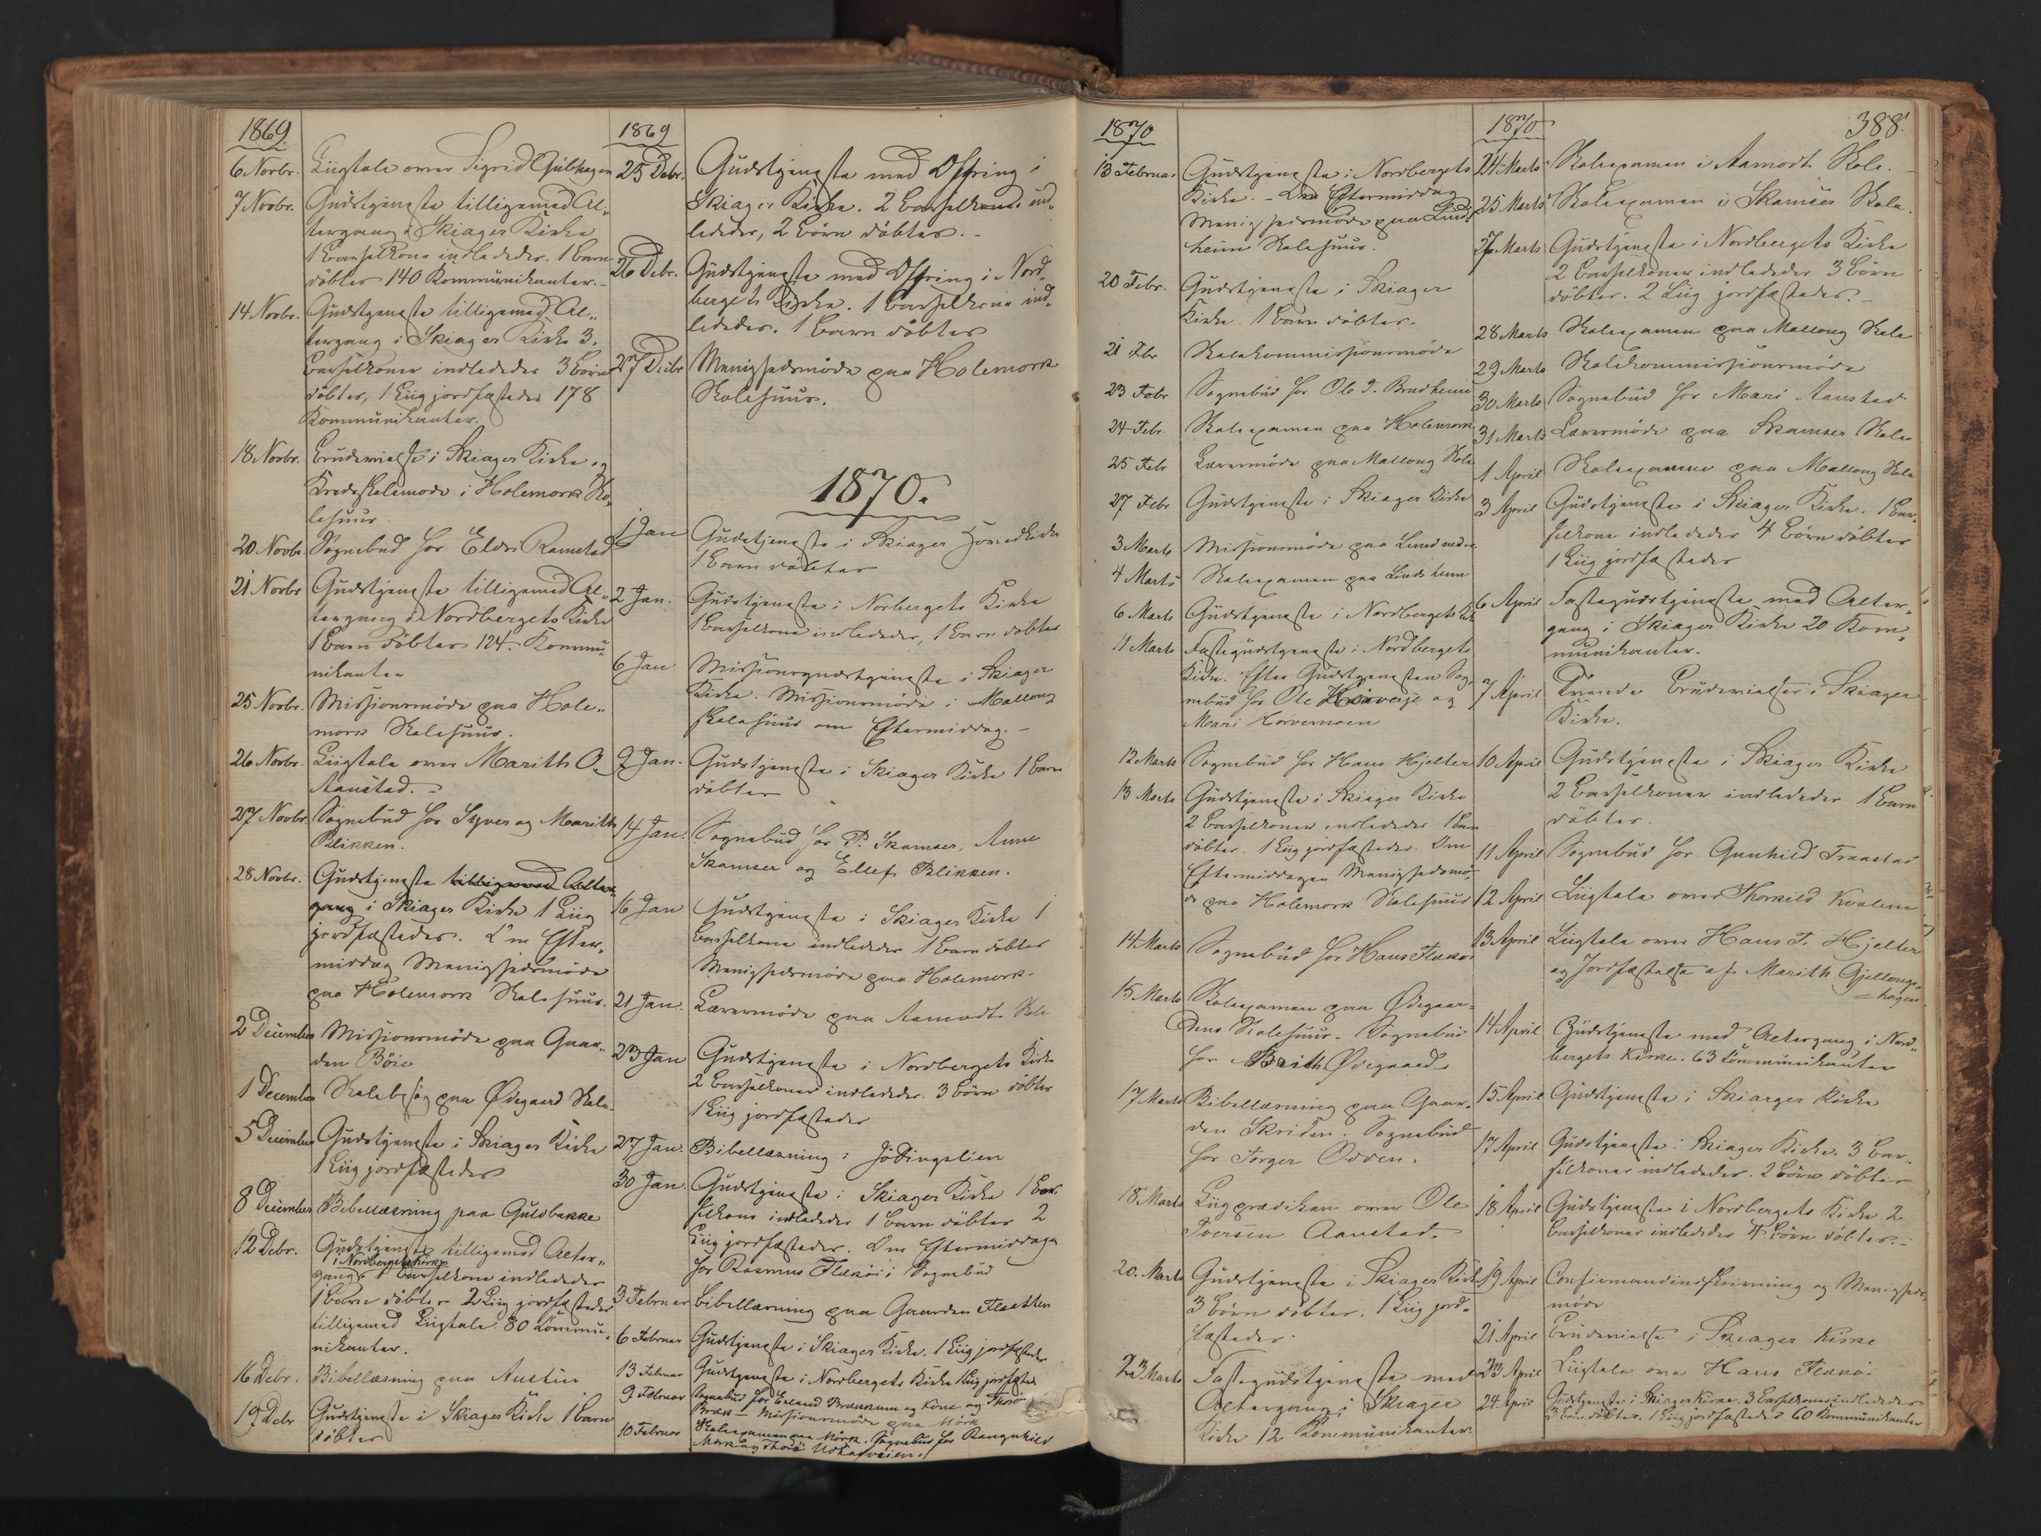 1869
6 Novbr. Liigtale over Sigrid Gulhagen
7 Novbr. Gudstjeneste tilligemed Al-
tergang i Skiager Kirke
1 Barselkone indlededes. 1 Barn
døbtes 140 Kommunikanter.
14 Novbr. Gudstjeneste tilligemed Al-
tergang i Skiager Kirke 3
Barselkoner indlededes 3 Børn
døbtes, 1 Liig jordfæstedes 178
Kommunikanter.
18 Novbr. Brudevielse i Skiager Kirke, og
Kredsskolemøde i Holemork Sko-
lehuus
20 Novbr. Sognebud for Eldri Ramstad
21 Novbr. Gudstjeneste tilligemed Al-
tergang i Nordbergets Kirke
1 Barn døbtes 124 Kommu-
nikanter
25 Novbr. Missionsmøde paa Hole-
mork Skolehuus.
26 Novbr. Liigtale over Marith O.
Aanstad.
27 Novbr. Sognebud for Syver og Marith
Blikken.
28 Novbr. Gudstjeneste tilligemed Alter-
gang i Skiager Kirke 1 Liig
jordfæstedes. Om Efter-
middag Menighedsmøde
paa Holemork Skolehuus.
2 December Missionsmøde paa Gaar-
den Bøie
1 December Skolebesøg paa Ødegaard Skole.
5 December Gudstjeneste i Skiager Kirke
1 Liig jordfæstedes
8 December Bibellæsning paa Guldbakke
12 Debr. Gudstjeneste tilligemed Alter-
i Nordbergets Kirke
gang 1 Barselkone indlededes
1 Barn døbtes 2 Liig jordfæstedes
tilligemed Liigtale. 80 Kommu-
nikanter.
16 Debr. Bibellæsning paa Austin
19 Debr Gudstjeneste i Skiager Kirke 1 Barn
døbtes
1869
25 Debr. Gudstjeneste med Offring i
Skiager Kirke. 2 Barselkoner ind-
lededes, 2 Børn døbtes.
26 Debr. Gudstjeneste med Offring i Nord-
bergets Kirke. 1 Barselkone ind-
lededes. 1 Barn døbtes
27 Debr Menighedsmøde paa Holemork
Skolehuus.
1870.
1 Jan Gudstjeneste i Skiager Hovedkirke
1 Barn døbtes
2 Jan. Gudstjeneste i Norbergets Kirke
1 Barselkone indlededes, 1 Barn døbtes
6 Jan Missionsgudstjeneste i Skiager
Kirke. Missionsmøde i Mallong
Skolehuus om Eftermiddag.
9 Jan. Gudstjeneste i Skiager Kirke 1 Barn
døbtes
14 Jan. Sognebud for P. Skamser, Anne
Skamser og Ellef Blikken.
16 Jan Gudstjeneste i Skiager Kirke 1
Barselkone indlededes 1 Barn døbtes
Menighedsmøde paa Holemork.
21 Jan. Lærermøde paa Aamodt Skole
23 Jan Gudstjeneste i Nordbergets Kirke
2 Barselkoner indlededes. 3 Børn døbtes
1 Liig jordfæstedes
27 Jan. Bibellæsning i Jødingslien
30 Jan. Gudstjeneste i Skiager Kirke 1 Bar-
selkone indlededes 1 Barn døbtes 2
Liig jordfæstedes. Om Eftermiddagen
for Rasmus Flækøi i Sognebud
3 Februar Bibellæsning paa Gaarden Flækken
6 Februar Gudstjeneste i Skiager Kirke. 1 Liig jordfæstedes
13 Februar Gudstjeneste i Nordbergets Kirke 1 Liig jordfæstet
9 Februar Sognebud for Erland Brækkum og Kone og Thor
Bræk — Missionsmøde paa Mörk
10 Februar Skoleexamen paa Mörk. Sognebud for Rangnhild
1870
13 Februar Gudstjeneste i Nordbergets
Kirke. — Om Eftermiddag
Menighedsmøde paa Linds-
heim Skolehuus.
20 Febr. Gudstjeneste i Skiager
Kirke. 1 Barn døbtes.
21 Fbr Skolekommissionsmøde
23 Febr. Sognebud for Ole T. Bradheim
24 Febr. Skoleexamen paa Holemork
25 Febr Lærermøde paa Mallong Skole
27 Febr Gudstjeneste i Skiager Kirke
3 Marts Missionsmøde paa Lund nedre
4 Marts Skoleexamen paa Lindsheim
6 Marts Gudstjeneste i Nordbergets Kirke
11 Marts Fastegudstjeneste i Nordbergets
Kirke. Efter Gudstjenesten Sog-
nebud for Ole og
Mari Horvemoen
12 Marts Sognebud for Hans Hjelter
13 Marts Gudstjeneste i Skiager Kirke
2 Barselkoner indlededes 1 Barn
døbtes. 1 Liig jordfæstedes. Om
Eftermiddagen Menighedsmø-
de paa Holemork Skolehuus
14 Marts Sognebud for Hans Flækøi
15 Marts Skoleexamen paa Ødegaar-
dens Skolehuus. Sognebud
for Brith Ødegaard.
17 Marts Bibellæsning paa Gaar-
den Skriden. Sognebud
for Torger Odden.
18 Marts Liigprædiken over Ole
Iversen Aanstad.
20. Marts Gudstjeneste i Skiager Kirke
3 Børn døbtes. 1 Liig jord-
fæstedes.
23 Marts Fastegudstjeneste med
Altergang i Skiager
Kirke 12 Kommunikanter.
1870
388.
24 Marts Skoleexamen i Aamodt Skole.
25 Marts Skoleexamen i Skamser Skole.
27 Marts Gudstjeneste i Nordbergets Kirke
2 Barselkoner indlededes 3 Børn
døbtes. 2 Liig jordfæstedes.
28 Marts Skoleexamen paa Mallong Skole
29 Marts Skolekommissionsmøde
30 Marts Sognebud for Mari Aanstad
31 Marts Lærermøde paa Skamser Skole
1 April Skoleexamen paa Mallong Skole
3 April Gudstjeneste i Skiager Kirke. 1 Bar-
selkone indlededes 4 Børn døbtes
1 Liig jordfæstedes
6 April Fastegudstjeneste med Alter-
gang i Skiager Kirke 20 Kom-
munikanter.
7 April Tvende Brudevielser i Skiager
Kirke.
10 April Gudstjeneste i Skiager Kirke
2 Barselkoner indlededes 1 Barn
døbtes.
11 April Sognebud for Gunhild Framstad
12 April Liigtale over Thorkild Kvalem
13 April Liigtale over Hans T. Hjelter
og Jordfæstelse af Marith Gjellongs-
hagen
14 April Gudstjeneste med Altergang i Nord-
bergets Kirke. 63 Communikanter
15 April Gudstjeneste i Skiager Kirke
17 April Gudstjeneste i Skiager Kirke 3 Bar-
selkoner indlededes. 2 Børn døbtes
18 April Gudstjeneste i Nordbergets Kirke 2
Barselkoner indlededes 4 Børn døbtes.
19 April Confirmandindskrivning og Menigheds-
møde
21 April Brudevielse i Skiager Kirke
23 April Liigtale over Hans Flækøi
24 April Gudstjeneste i Skiager Kirke. 3 Barselkoner indlededes
3 Børn døbtes. 1 Liig jordfæstedes 60 Kommunikanter